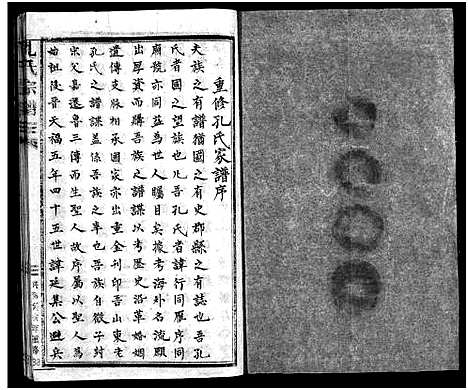 重修孔氏家譜序
夫族之有譜猶國之有史郡縣之有誌也吾孔
氏者國之望族也凡吾孔氏者諱行同雁序同
廟貌亦同益為世人矚目矣後考海外名流頗
出厚資而購吾族之譜諜以考歷史沿革婚姻
遺傳支脈相承國家亦出重金刊印吾山東老
孔氏之譜諜蓋係吾族之來也吾族自微子封
宋父嘉遷魯三傳而生聖人故序屬以聖人為
始祖後晉天福五年四十五世諱延集公避兵
孔氏宗譜